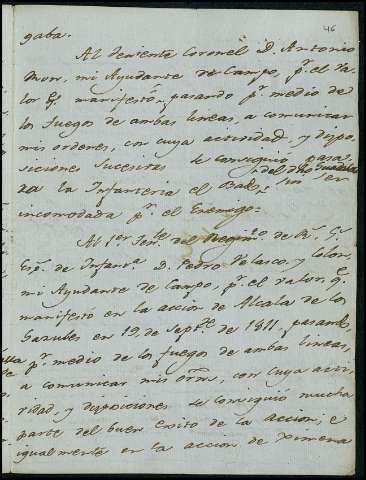 46
gaba.
Al teniente Coronel D. Antonio
mi Ayudante de Campo, pr. el va-
lor q. manifestó, pasando pr. medio de
los fuegos de ambas lineas, a comunicar
mis ordenes, con cuya actividad, y dispo-
siciones sucesivas se consiguio pasa-
za la Infanteria el sin ser
incomodada pr. el Enemigo=
Al 1er. Tente. del Regimto. de Rs. Gs.
Esps. de Infanta. D. Pedro Velasco, y Colon,
mi Ayudante de Campo, pr. el valor, q.
manifestó en la accion de Alcala de los
Gazules en 19, de Septre. de 1811. pasando,
pr. medio de los fuegos de ambas lineas,
a comunicar mis orns., con cuya acti-
vidad, y disposiciones se consiguió mucha
parte del buen exito de la accion; e
igualmente en la accion de Ximena